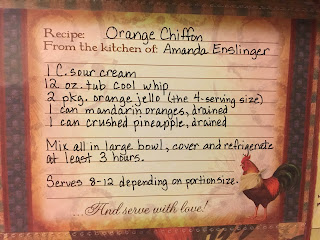 Recipe: Orange Chiffon
From the kitchen of: Amanda Enslinger
1 C. sour cream
12 oz. tub cool whip
2 pkg. orange jello (the 4-serving size)
1 can mandarin oranges, drained
1 can crushed pineapple, drained
Mix all in large bowl, cover and refrigerate
at least 3 hours.
Serves 8-12 depending on portion size.
...And serve with love!